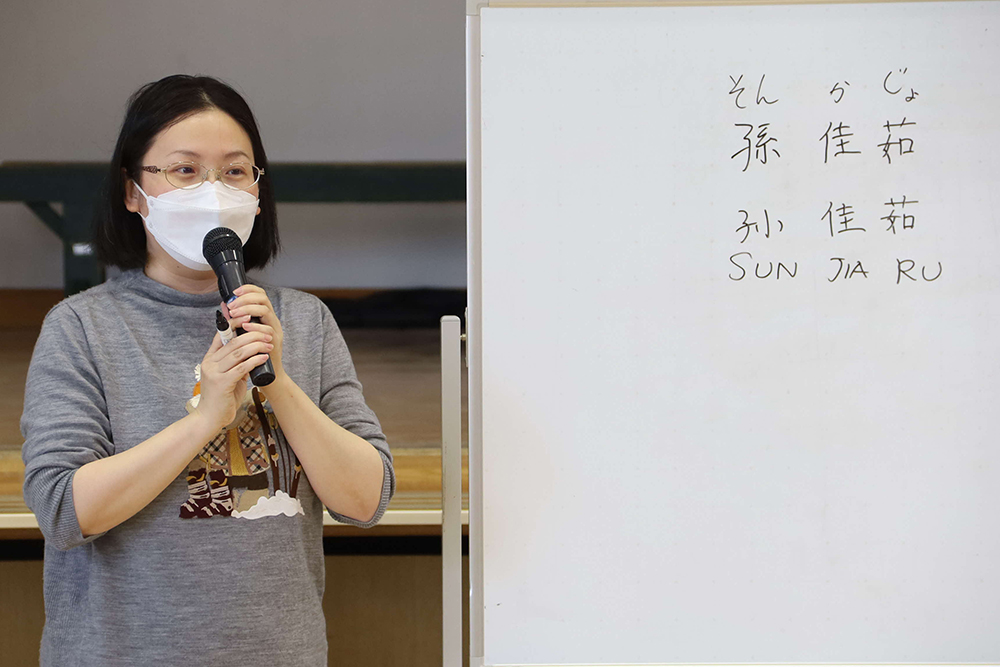 そん か じょ
孫 佳 茹
孙 佳 茹
SUN JIA RU